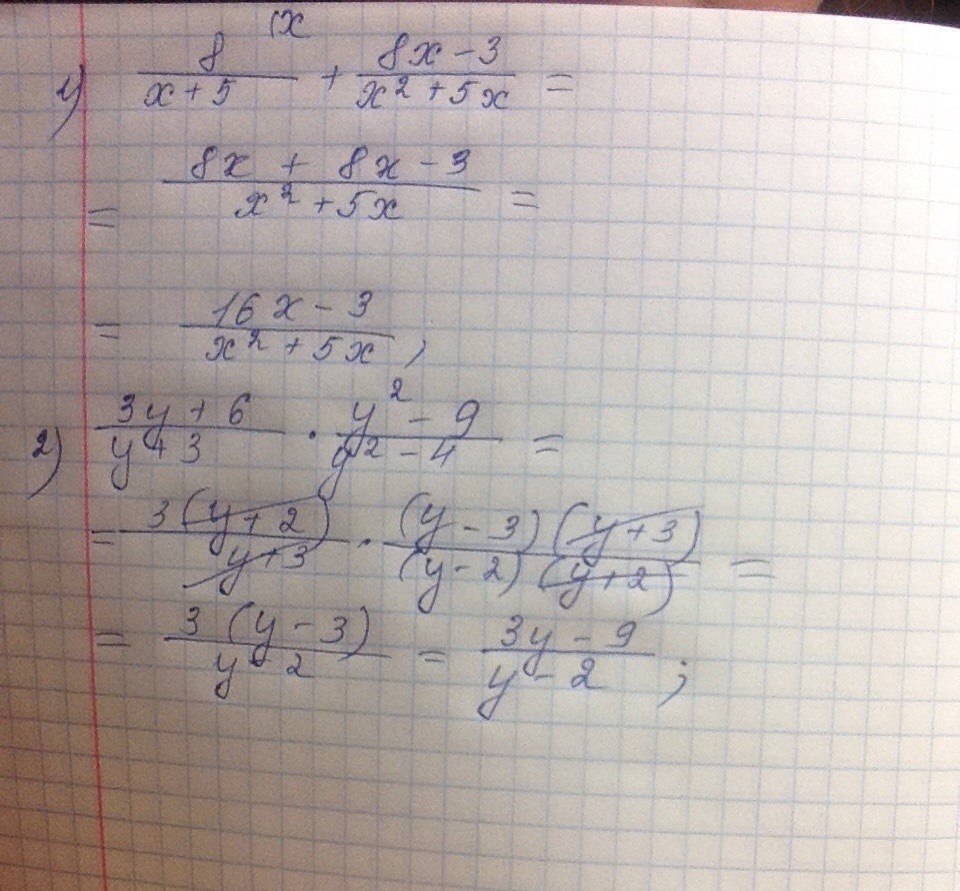 1) 8/(x+5) (x + (8x-3)/(x²+5x) =
= (8x + 8x - 3)/(x²+5x) =
= (16x - 3)/(x² + 5x),
2) (3y+6)/(y+3) · (y²-9)/(y²-4) =
= 3(y+2)/(y+3) · (y-3)(y+3)/((y-2)(y+2)) =
= 3(y-3)/(y-2) = (3y-9)/(y-2);